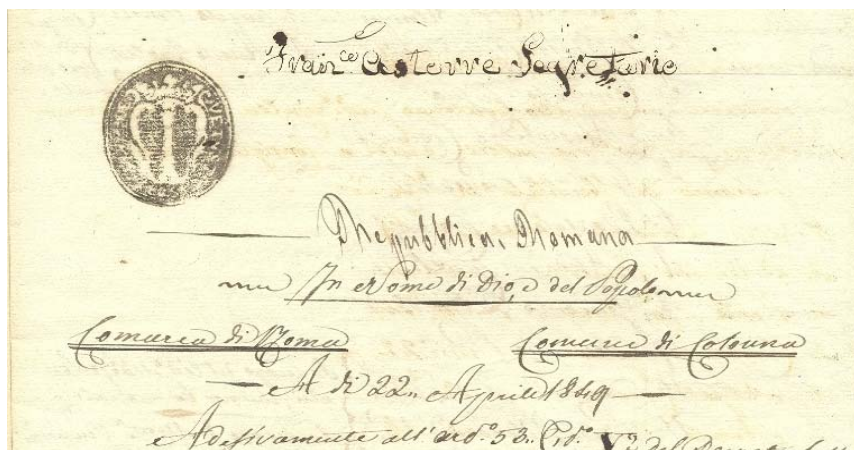 Fran.co Segretario
Repubblica Romana
In Nome di Dio, e del Popolo
Comarca di Roma
Comune di Colonna
A di 22 Aprile 1849
Adesivamente all' del